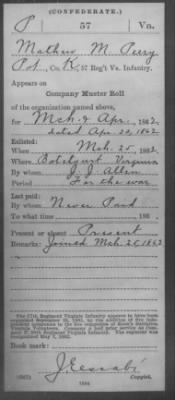 (CONFEDERATE.)
P 57 Va.
Mathew M. Perry
Pvt., Co. K, 57 Reg't Va. Infantry.
Appears on
Company Muster Roll
of the organization named above,
for Mch & Apr, 1862,
dated Apr 30, 1862
Enlisted:
When Mch. 25, 1862
Where Botetourt Virginia
By whom J. J. Allen
Period For the war
Last paid:
By whom Never Paid
To what time , 186 .
Present or absent Present
Remarks: Joined Mch 25, 1862
The 57th Regiment Virginia Infantry appears to have been
Book mark:
Copyist.